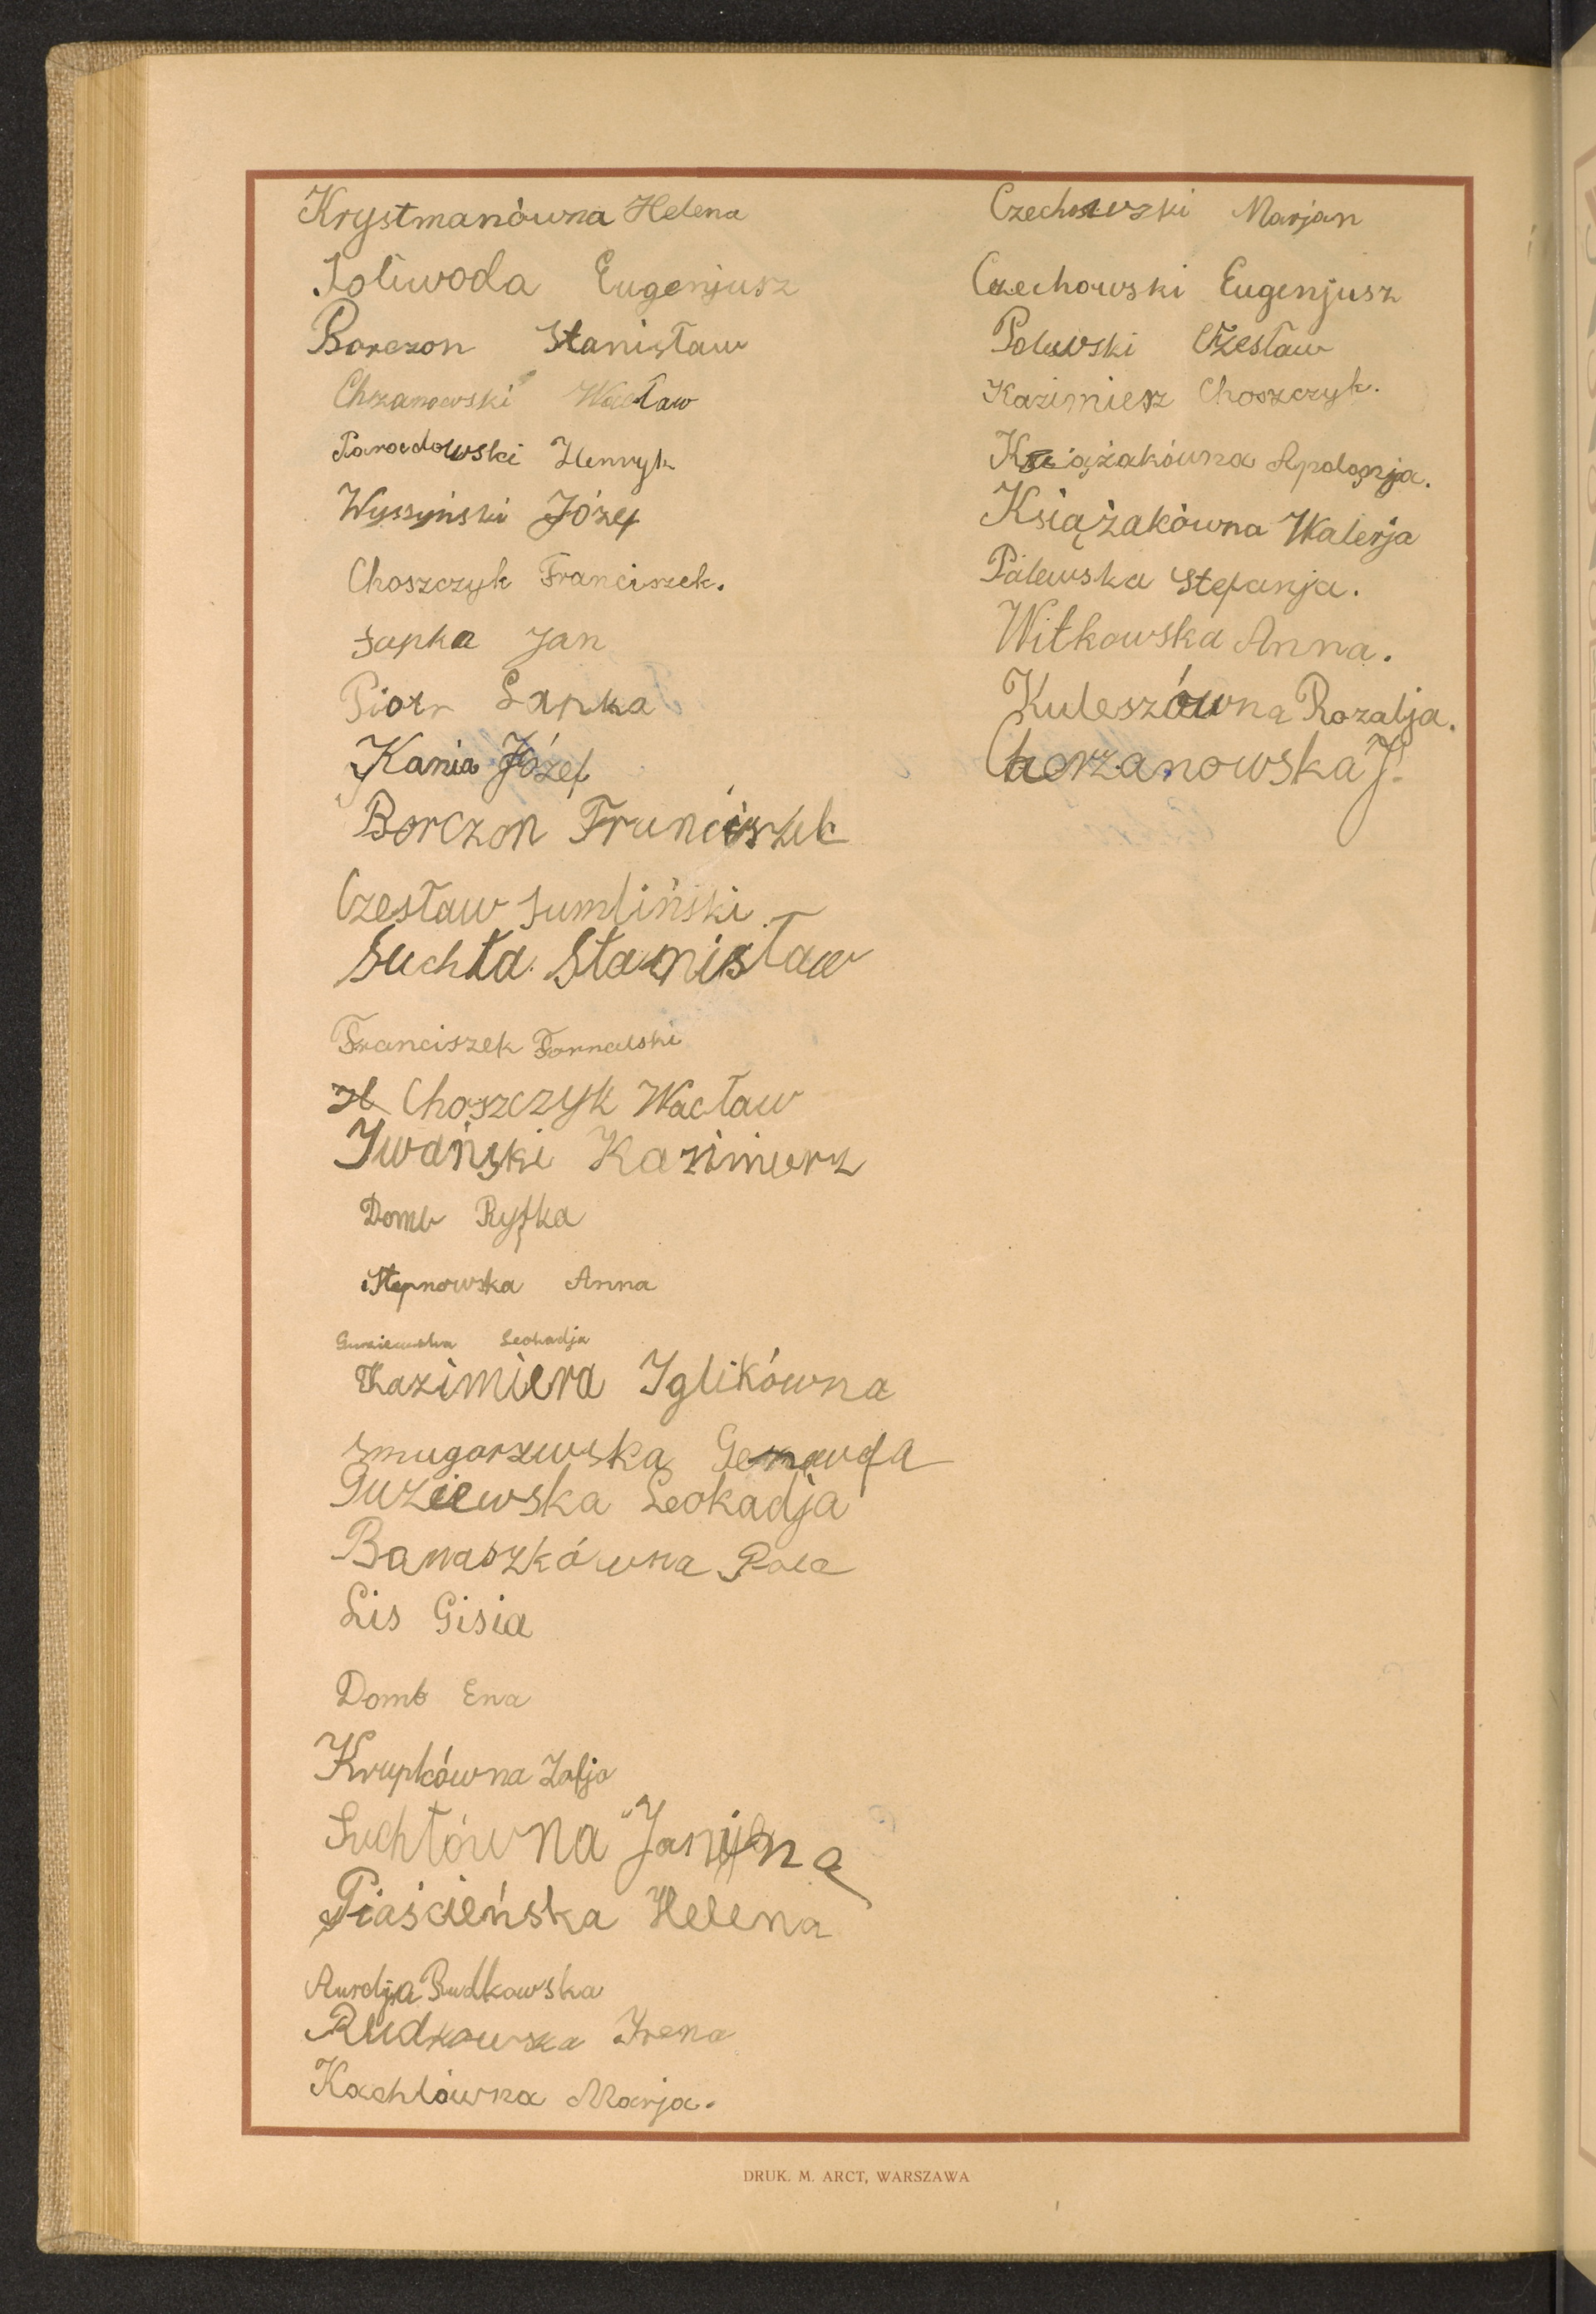 Krystmanówna Helena
Soliwoda Eugenjusz
Borczon Stanisław
Chrzanowski Wacław
Paradowski Henryk
Wyszyński Józef
Choszczyk Franciszek.
Łapka Jan
Piotr Łapka
Kania Józef
Borczon Franciszek
Czesław Sumliński
Suchta Stanisław
Franciszek Fornalski
Choszczyk Wacław
Iwański Kazimierz
Domb Ryfka
Stepnowska Anna
Guziewska Leokadja
Kazimiera Iglikówna
Smugorzewska Genowefa
Guziewska Leokadja
Banaszkówna Pola
Lis Gisia
Domb Ena
Krupkówna Zofja
Suchtówna Janina
Piaścieńska Helena
Aurelja Rudkowska
Rudkowska Irena
Kachlówna Marja.
Czechowski Marjan
Czechowski Eugenjusz
Polewski Czesław
Kazimierz Choszczyk.
Książakówna Apolonja.
Książakówna Walerja
Palewska Stefanja.
Witkowska Anna.
Kuleszówna Rozalja.
Chorzanowska J.
DRUK. M. ARCT, WARSZAWA